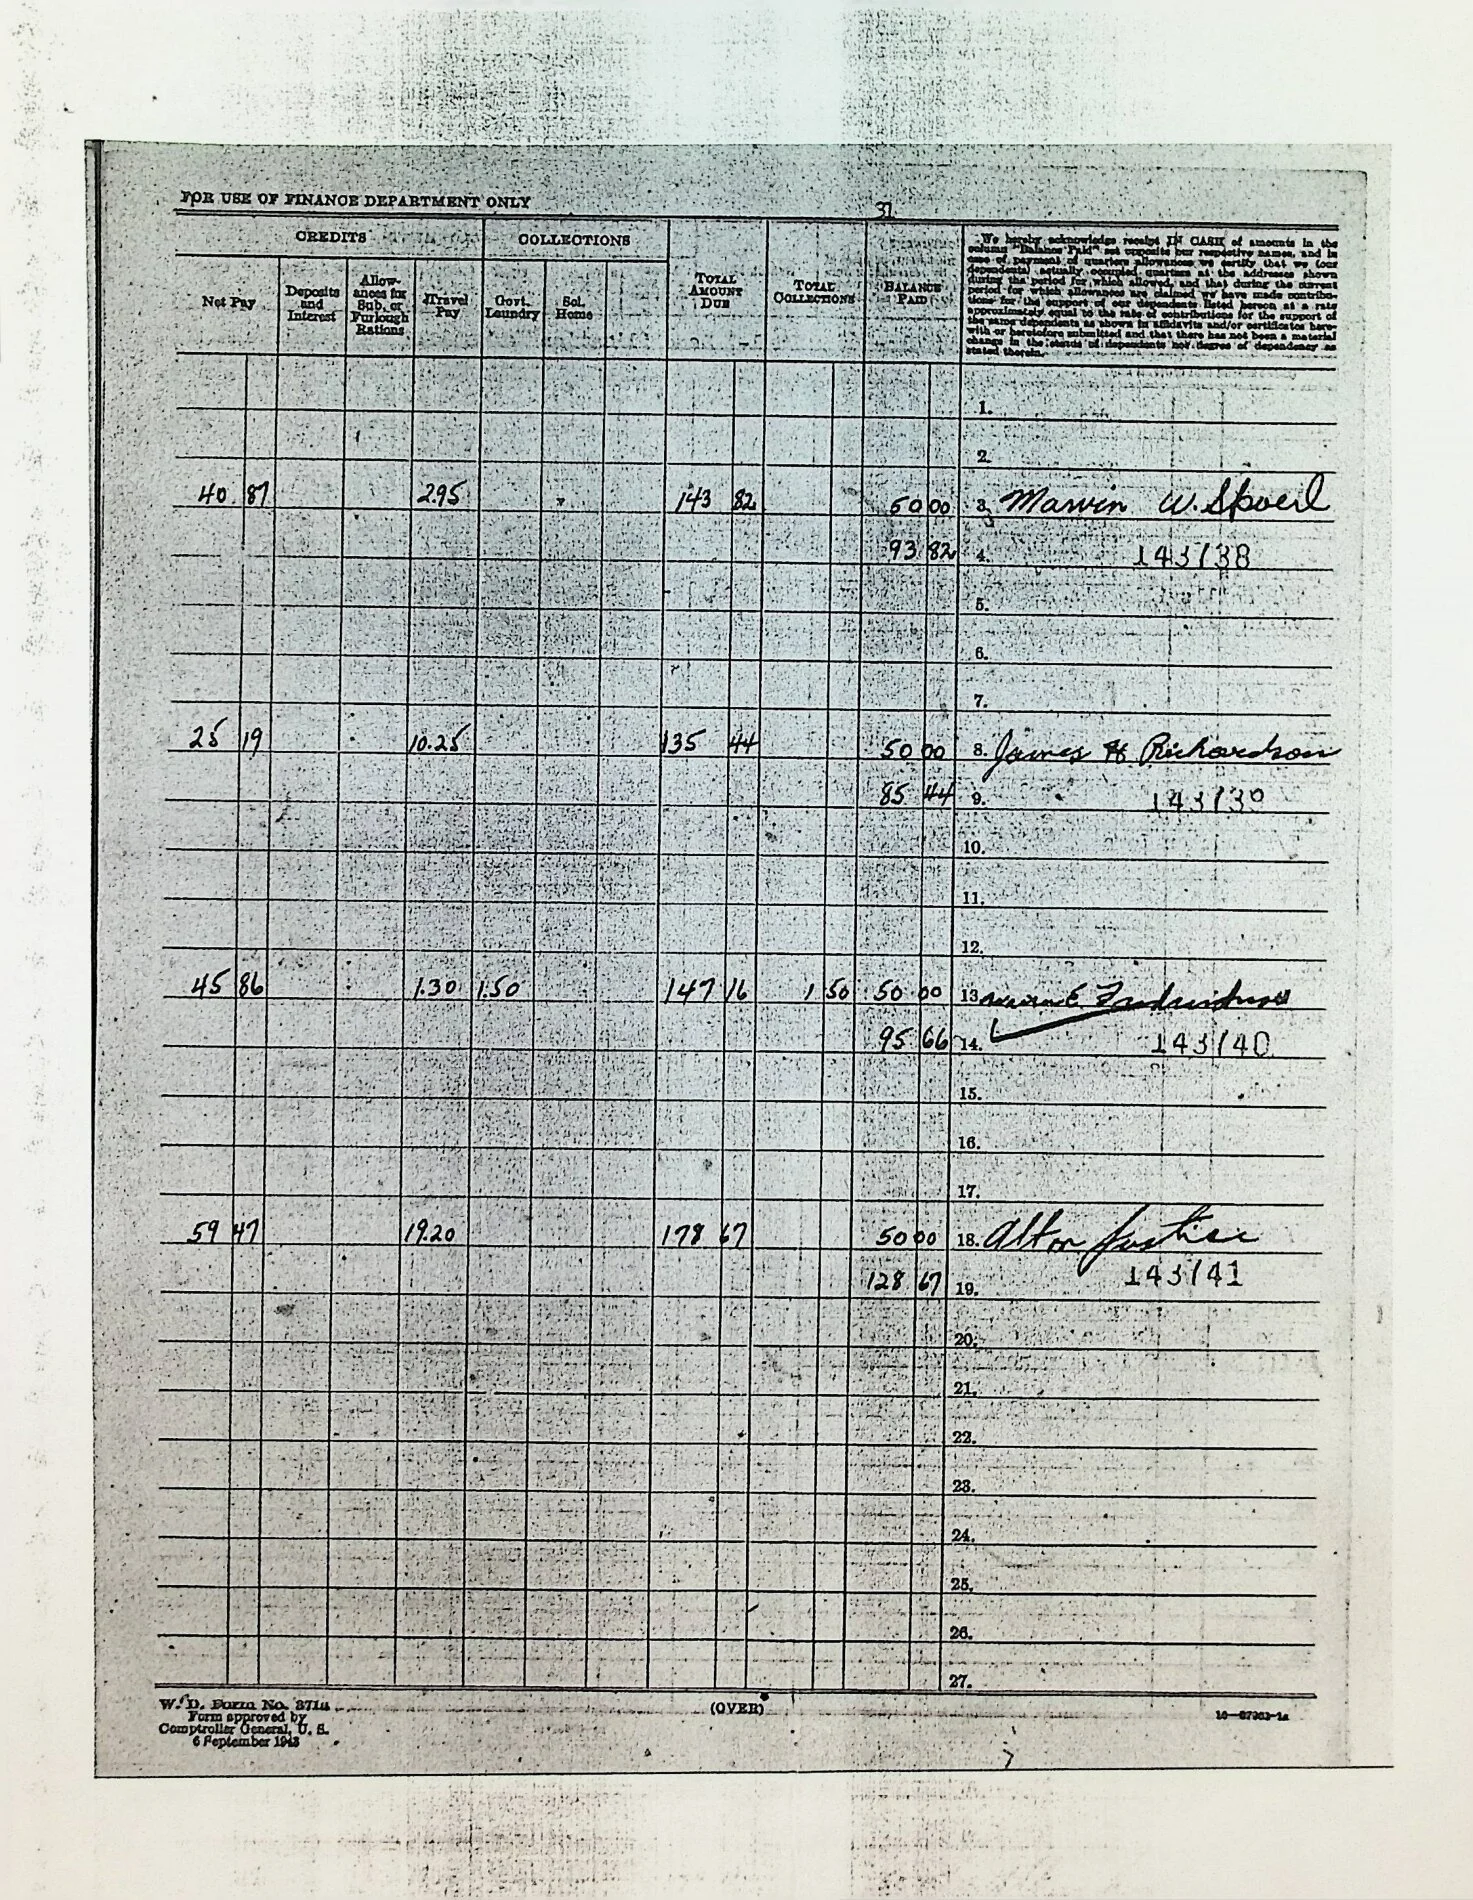 FOR USE OF FINANCE DEPARTMENT ONLY
31
CREDITS COLLECTIONS TOTAL AMOUNT DUE TOTAL COLLECTIONS BALANCE PAID
Net Pay Deposits and Interest Allowances for Sub. or Furlough Rations Travel Pay Govt. Laundry Sol. Home
We hereby acknowledge receipt IN CASH of amounts in the
column "Balance Paid" set opposite our respective names, and in
case of payment of quarters allowances we certify that we (our
dependents) actually occupied quarters at the addresses shown
during the period for which allowed, and that during the current
period for which allowances are claimed we have made contribu-
tions for the support of our dependents listed hereon at a rate
approximately equal to the rate of contributions for the support of
the same dependents as shown in affidavits and/or certificates here-
with or heretofore submitted and that there has not been a material
change in the status of dependents nor degree of dependency as
stated therein.
1.
2.
40 87 2.95 143 82 50 00 3. Marvin W. Spoerl
93 82 4. 143138
5.
6.
7.
25 19 10.25 135 44 50 00 8. James H Richardson
85 44 9. 143139
10.
11.
12.
45 86 1.30 1.50 147 16 1 50 50 00 13. E.
95 66 14. 143140
15.
16.
17.
59 47 19.20 178 67 50 00 18. Alton Justice
128 67 19. 143141
20.
21.
22.
23.
24.
25.
26.
27.
W. D. Form No. 371a
Form approved by
Comptroller General, U. S.
6 September 1943
(OVER)